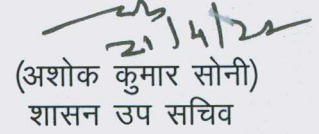 21/4/22
(अशोक कुमार सोनी)
शासन उप सचिव